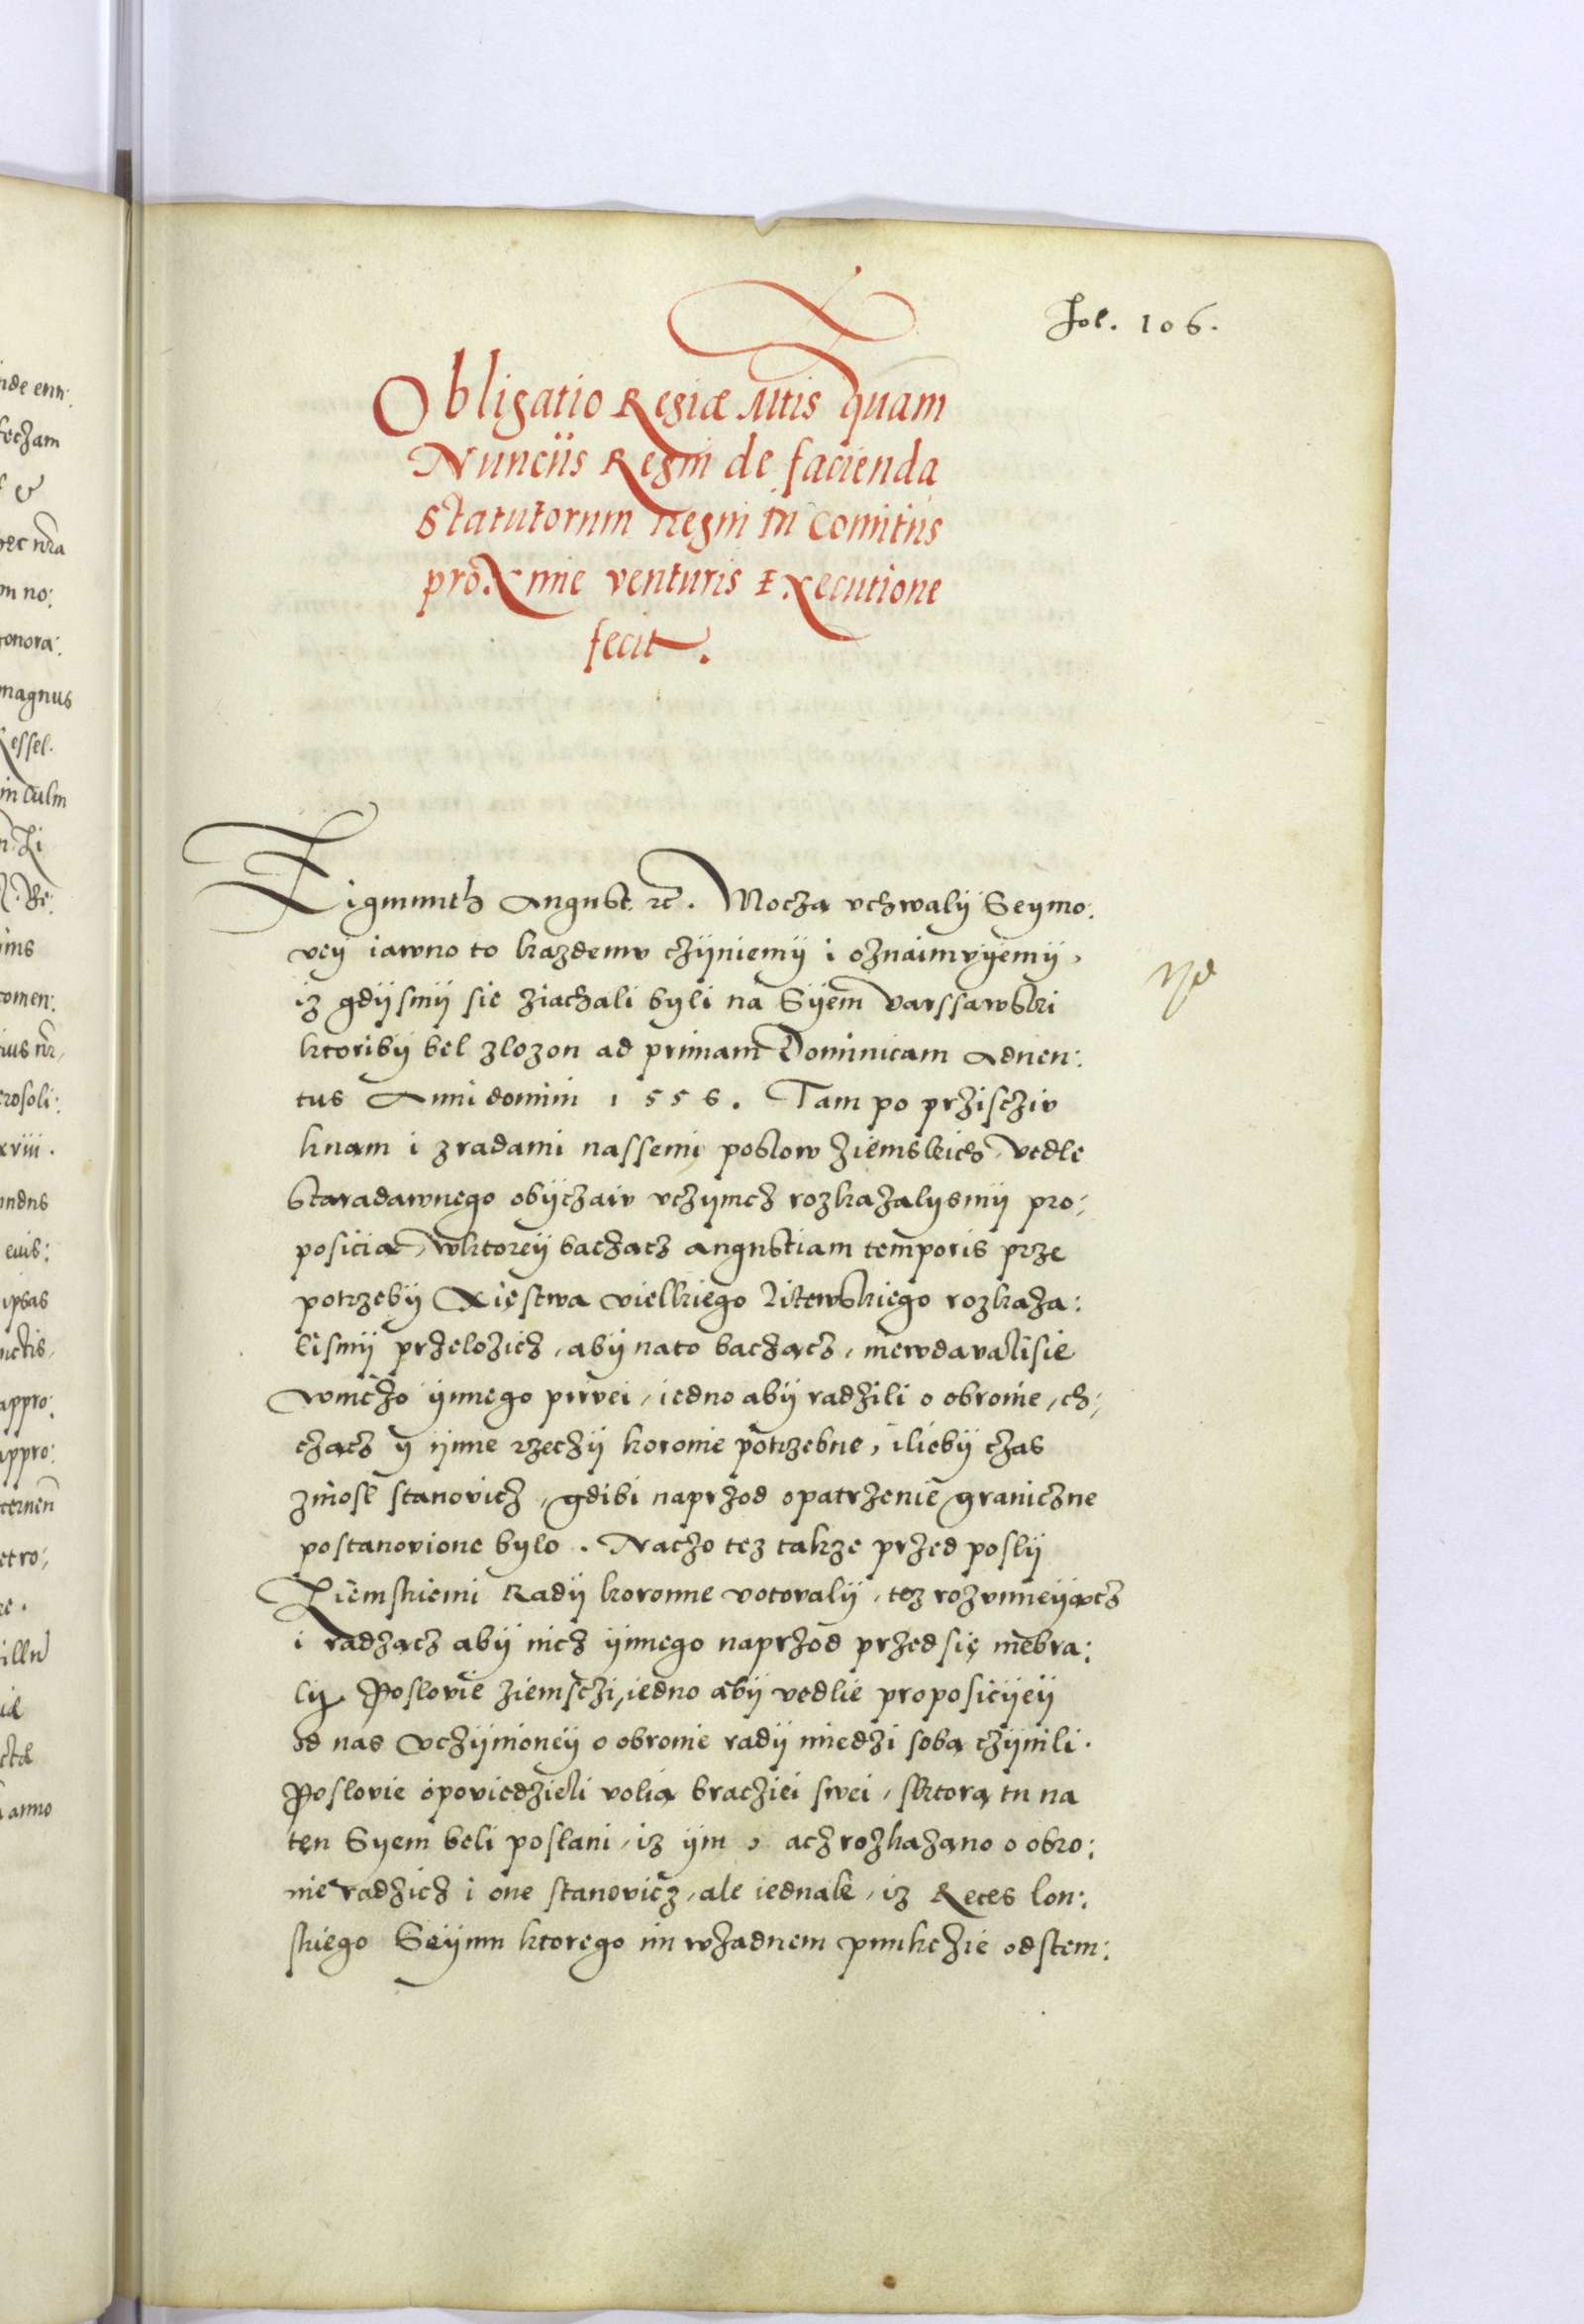 Fol. 106.
Obligatio Regiæ Mtis quam
Nunciis Regni de facienda
Statutorum Regni in Comitiis
proxime venturis Executione
fecit.
Zigmunth August etc. Mocza vchwalÿ Seymo:
veÿ iawno to kazdemu czÿniemÿ i oznaimvÿemÿ,
iz gdÿsmÿ sie ziachali byli na Sÿem Varssawski
ktoribÿ bel zlozon ad primam Dominicam Aduen:
tus Anni domini 1556. Tam po prziscziv
knam i zradami nassemi poslow ziemskich vedle
staradawnego obÿczaiv vczÿmcz rozkazalysmÿ pro:
posiciae, wktoreÿ baczacz angustiam temporis prze
potrzebÿ Xięstwa vielkiego Litewskiego rozkaza:
lismÿ przelozicz, abÿ nato baczącz, niewdavalisie
wniczo ÿnnego pirvei, iedno abÿ radzili o obronie, ch:
czącz ÿ ÿnne rzeczÿ koronie potrzebne, iliebÿ czas
zniosl stanovicz, gdibi naprzod opatrzenie graniczne
postanovione bylo. Naczo tez takze przed poslÿ
Ziemskiemi Radÿ koronne votovalÿ, tez rozvmieÿącz
i radzącz abÿ nicz ÿnnego naprzod przedsię niebra:
lÿ Poslovie ziemsczi, iedno abÿ vedlie proposicÿeÿ
od nas vczÿnioneÿ o obronie radÿ miedzi sobą czÿnili.
Poslovie opoviedzieli volią braciziei swei, sktorą tu na
ten Syem beli poslani, iz ÿm, acz rozkazano o obro:
nie radzicz i one stanovicz, ale iednak, iz Reces lon:
skiego Seÿmu ktorego im wzadnem punkczie odstem: